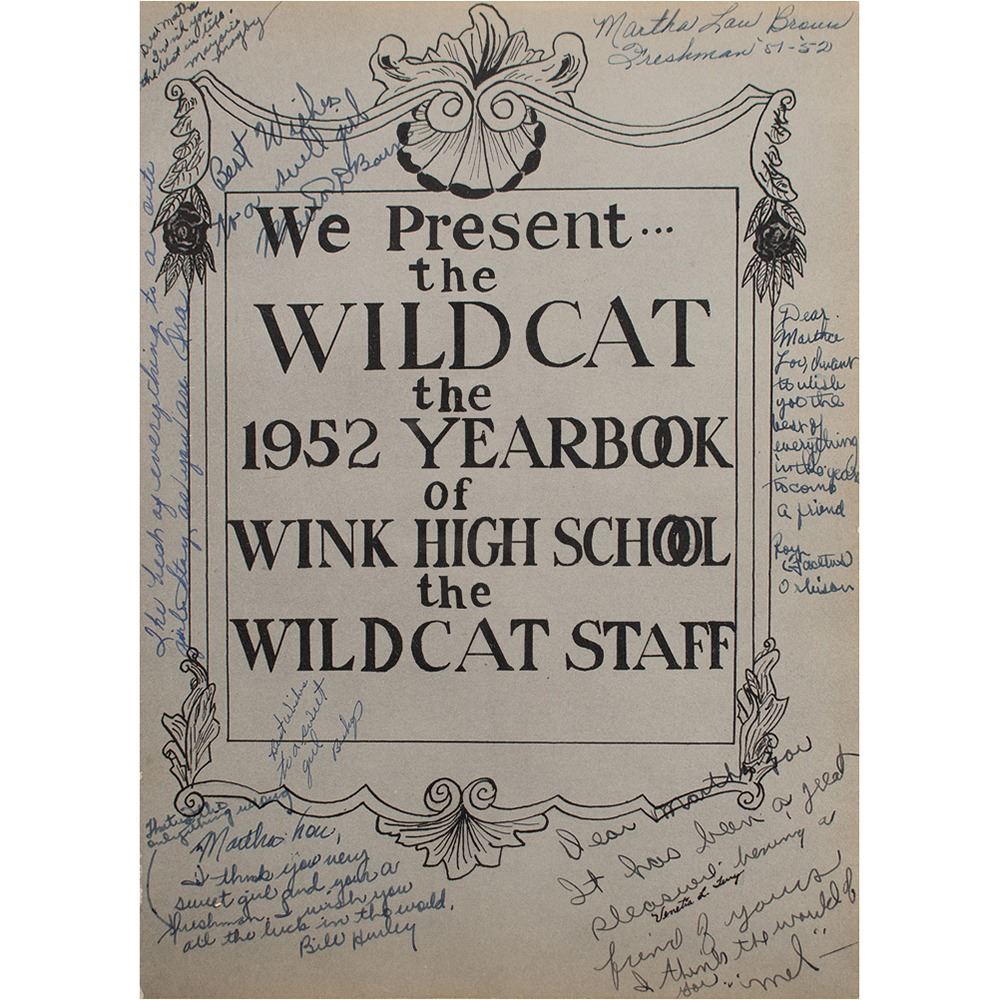 Dear Martha
I wish you
the best in life.
Marjorie
Martha Lou Brown
Freshman '51-'52
Best Wishes
to a swell girl
We Present...
the
WILDCAT
the
1952 YEARBOOK
of
WINK HIGH SCHOOL
the
WILDCAT STAFF
The best of everything to a cute
girl. Stay as you are. Ira
Dear
Martha
Lou, I want
to wish
you the
best of
everything
in the years
to come
a friend
Roy
Facetus
Orbison
Best Wishes
to a sweet
girl
everything wrong
Martha Lou,
I think you very
sweet girl and your a
freshman, I wish you
all the luck in the world.
Bill Hurley
Dear Martha Lou
It has been a great
pleasure bening a
Veneta L. Terry
friend of yours
I think the world of
you. "mel"